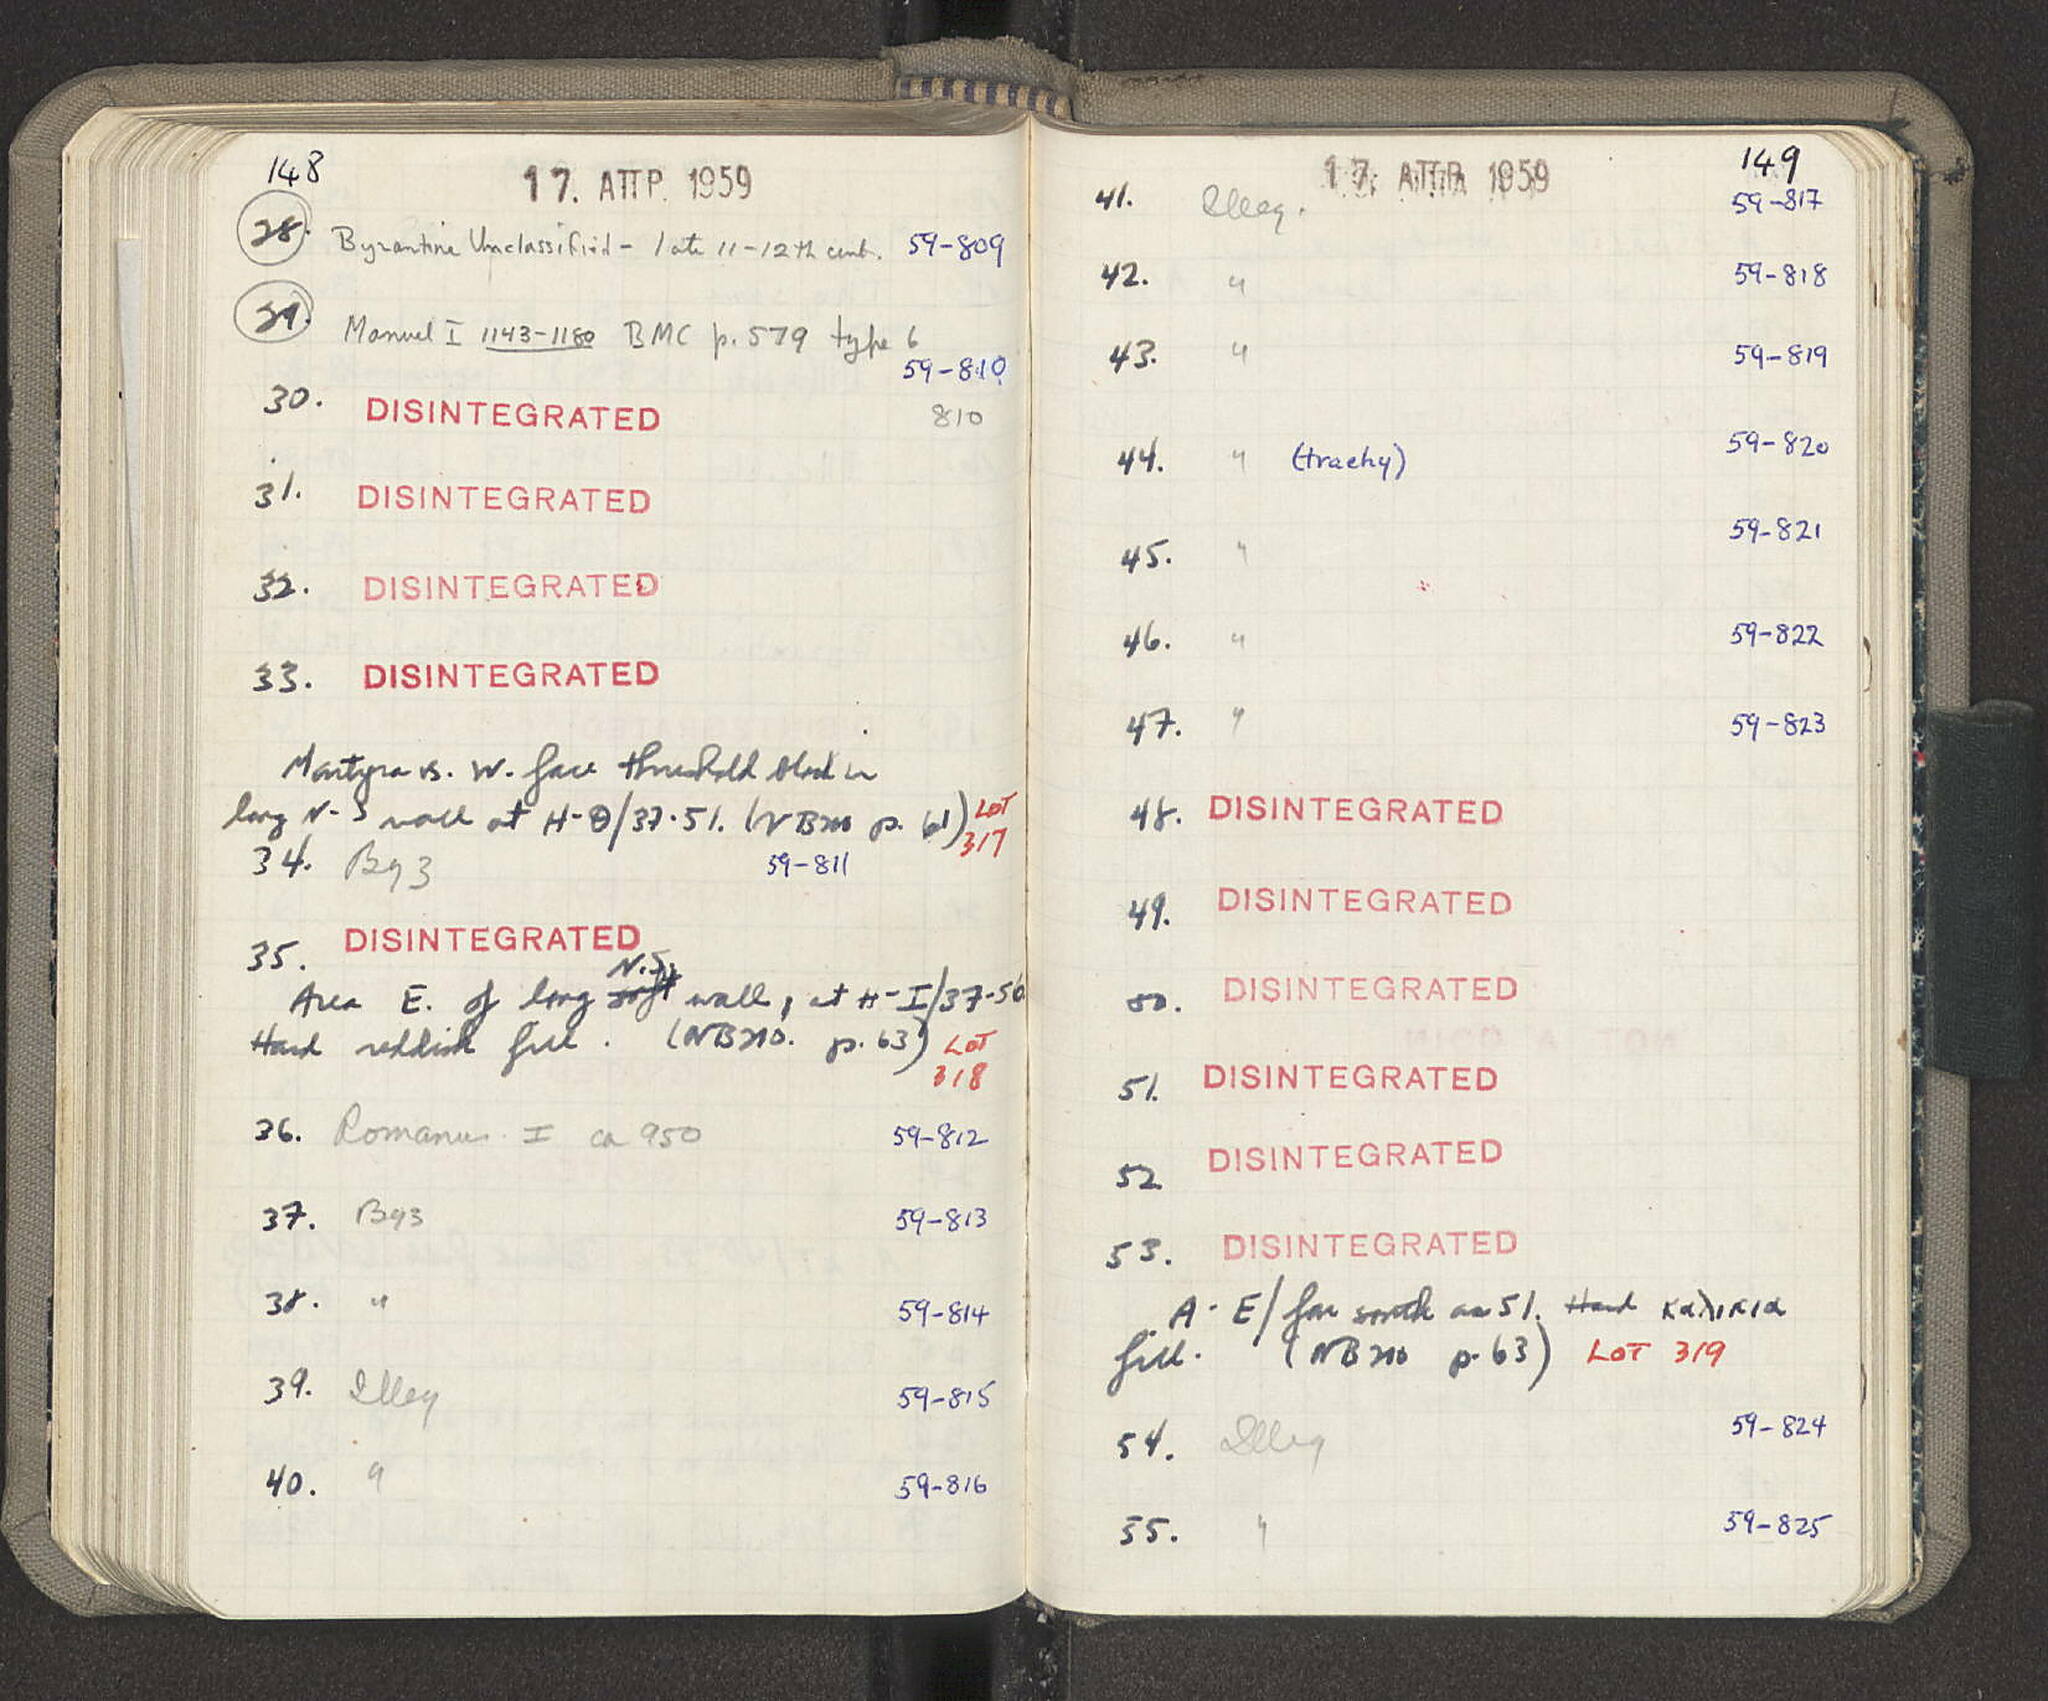 148
17. ΑΠΡ. 1959
28. Byzantine Unclassified - late 11-12th cent. 59-809
29. Manuel I 1143-1180 BMC p. 579 type 6
59-810
30. DISINTEGRATED 810
31. DISINTEGRATED
32. DISINTEGRATED
33. DISINTEGRATED
W. face threshold block in
long N-S wall at H-Θ/37-51. (NB 210 p. 61) LOT
317
34. Byz 59-811
35. DISINTEGRATED
N.S.
Area E. of long wall, at H-I/37-50
Hard reddish fill. (NB 210. p. 63) LOT
318
36. Romanus I ca 950 59-812
37. Byz 59-813
38. " 59-814
39. Illeg 59-815
40. " 59-816
149
17. ΑΠΡ. 1959
41. Illeg. 59-817
42. " 59-818
43. " 59-819
44. " (trachy) 59-820
45. " 59-821
46. " 59-822
47. " 59-823
48. DISINTEGRATED
49. DISINTEGRATED
50. DISINTEGRATED
51. DISINTEGRATED
52 DISINTEGRATED
53. DISINTEGRATED
A-E/far south as 51. Hard χαλικια
fill. (NB 210 p. 63) LOT 319
54. Illeg 59-824
55. " 59-825